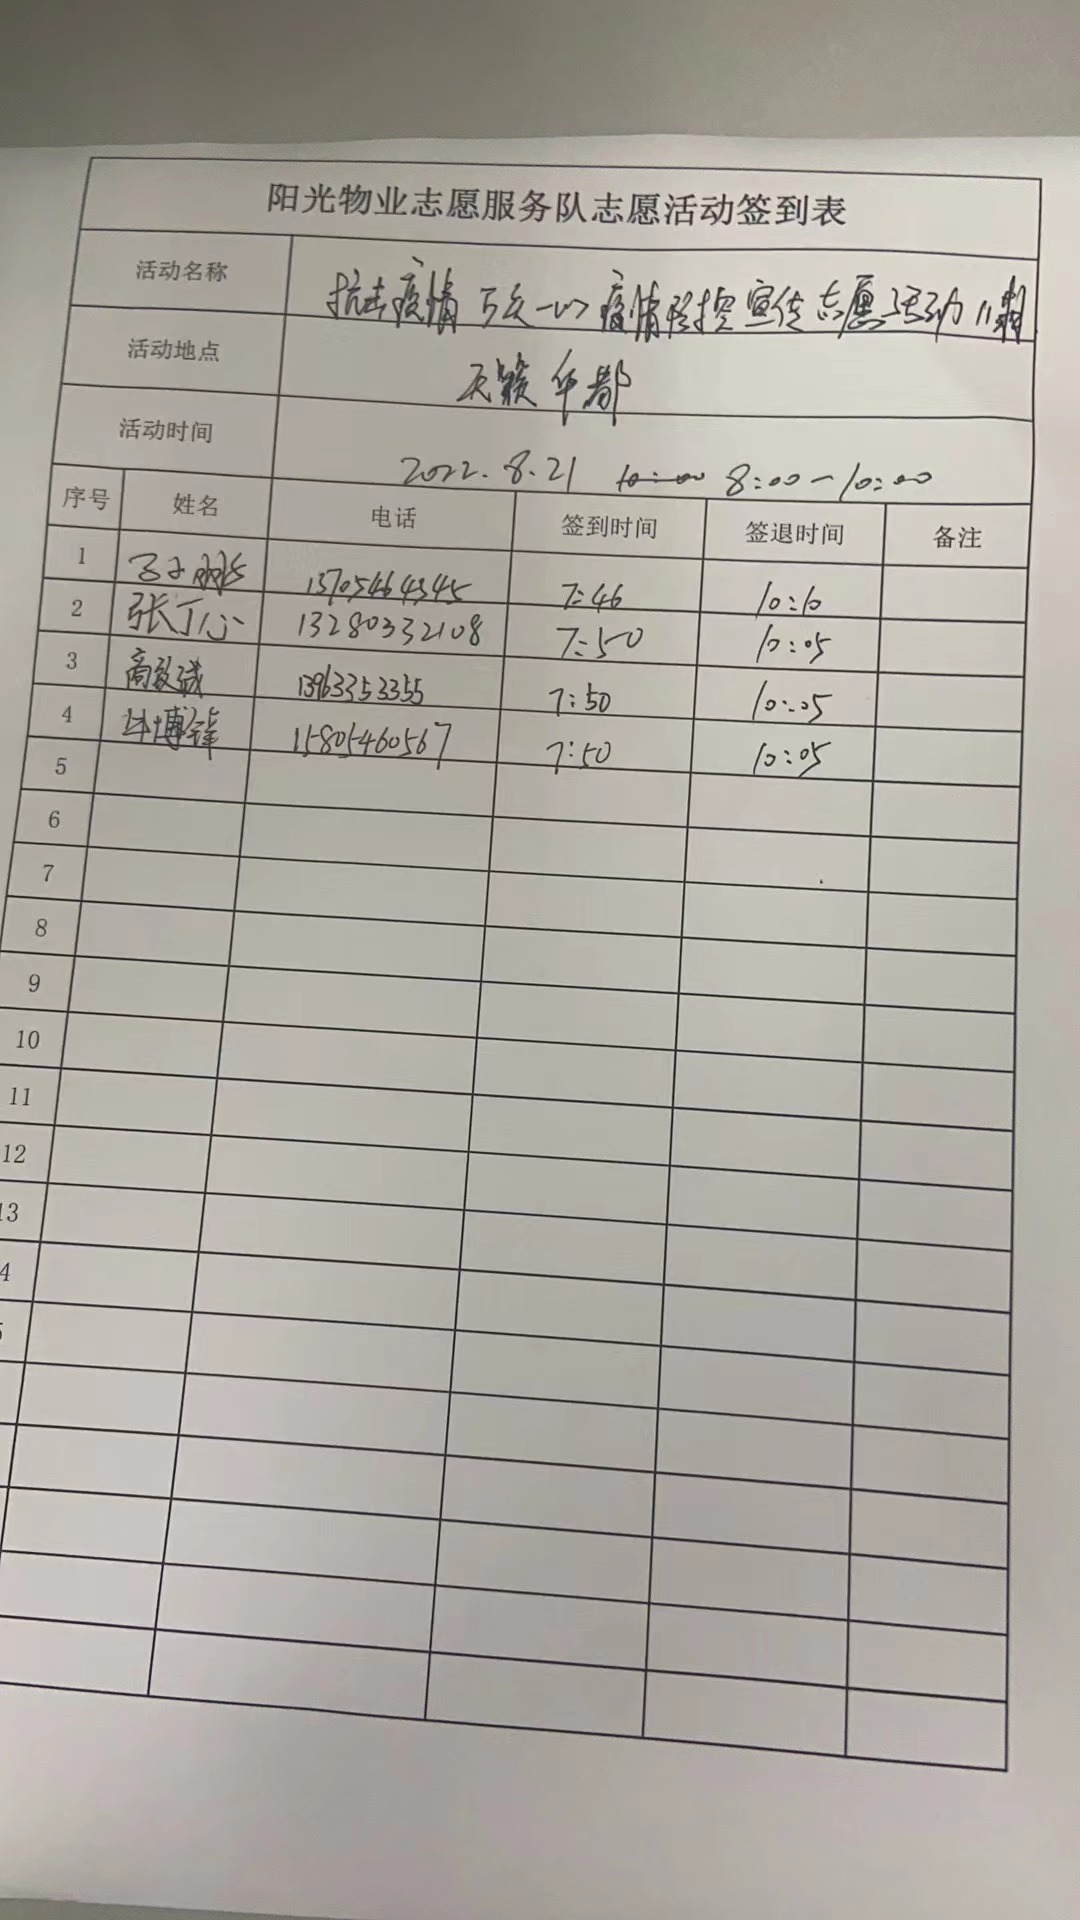 阳光物业志愿服务队志愿活动签到表
活动名称 抗击疫情 万众一心 疫情防控宣传志愿活动
活动地点 天颐华都
活动时间 2022.8.21 10:00 8:00-10:00
序号 姓名 电话 签到时间 签退时间 备注
1 13705464345 7:46 10:10
2 张丁心 13280332108 7:50 10:05
3 商致诚 13963353355 7:50 10:05
4 博锋 15805460567 7:50 10:05
5
6
7
8
9
10
11
12
13
4
5